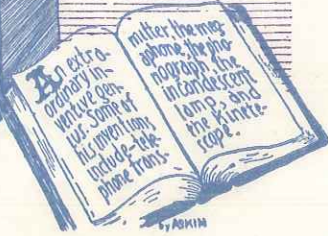 An extra-
ordinary in-
ventive gen-
ius. Some of
his inventions
include-tele
phone trans-
mitter, the meg
aphone, the pho-
nograph, the
incandescent
lamp, and
the Kinete-
scope.
by ASKIN